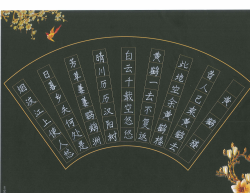 黄鹤楼
昔人已乘黄鹤去
此地空余黄鹤楼
黄鹤一去不复返
白云千载空悠悠
晴川历历汉阳树
芳草萋萋鹦鹉洲
日暮乡关何处是
烟波江上使人愁